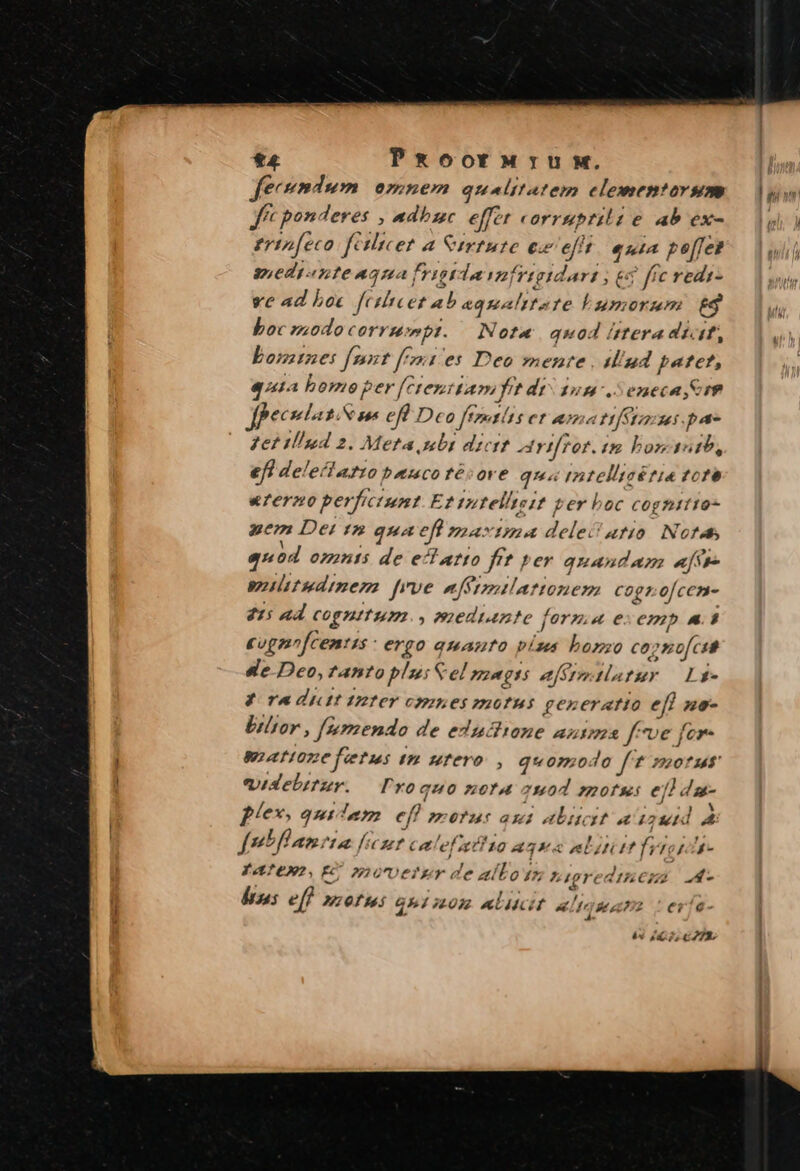 14 PROOEMIUM.
ſecundum omnem qualitatem elementorum
ſic ponderes, adhuc eſſet corruptibile ab ex-
trinſeco ſcilicet a virtute quia poſſet
mediante aqua frigida infrigidari, & ſic redi-
re ad hoc ſcilicet ab aqualitate humorum &
hoc modo corrumpi. Nota quod litera dicit,
homines ſunt ſimiles Deo mente, illud patet,
quia homo per ſcientiam fit Seneca, vir
ſpeculativus eſt Deo ſimilis et amatiſſimus. pa-
tet illud 2. Meta, ubi dicit Ariſtot. in
eſt delectatio pauco tēpore qua intelligētia toto
aterno perficiunt. Et intelligit per hoc cognitio-
nem Dei in qua eſt maxima delectatio. Nota,
quod omnis delectatio fit per quandam aſſi-
militudinem ſive aſſimilationem cognoſcen-
tis ad cognitum, mediante forma
cognoſcentis: ergo quanto plus homo cognoſcit
de Deo, tanto plus vel magis aſſimilatur Li-
dicit inter omnes motus generatio eſt no-
bilior, ſumendo de eductione anima ſive for-
matione fœtus in utero, quomodo ſit motus
videbitur. Pro quo nota quod motus eſt du-
plex, quidam eſt motus qui abiicit aliquid à
ſubſtantia ſicut calefactio aqua abiicit frigidi-
tatem, & movetur de albo in nigredinem A-
lius eſt motus qui non abiicit aliquam perfe-